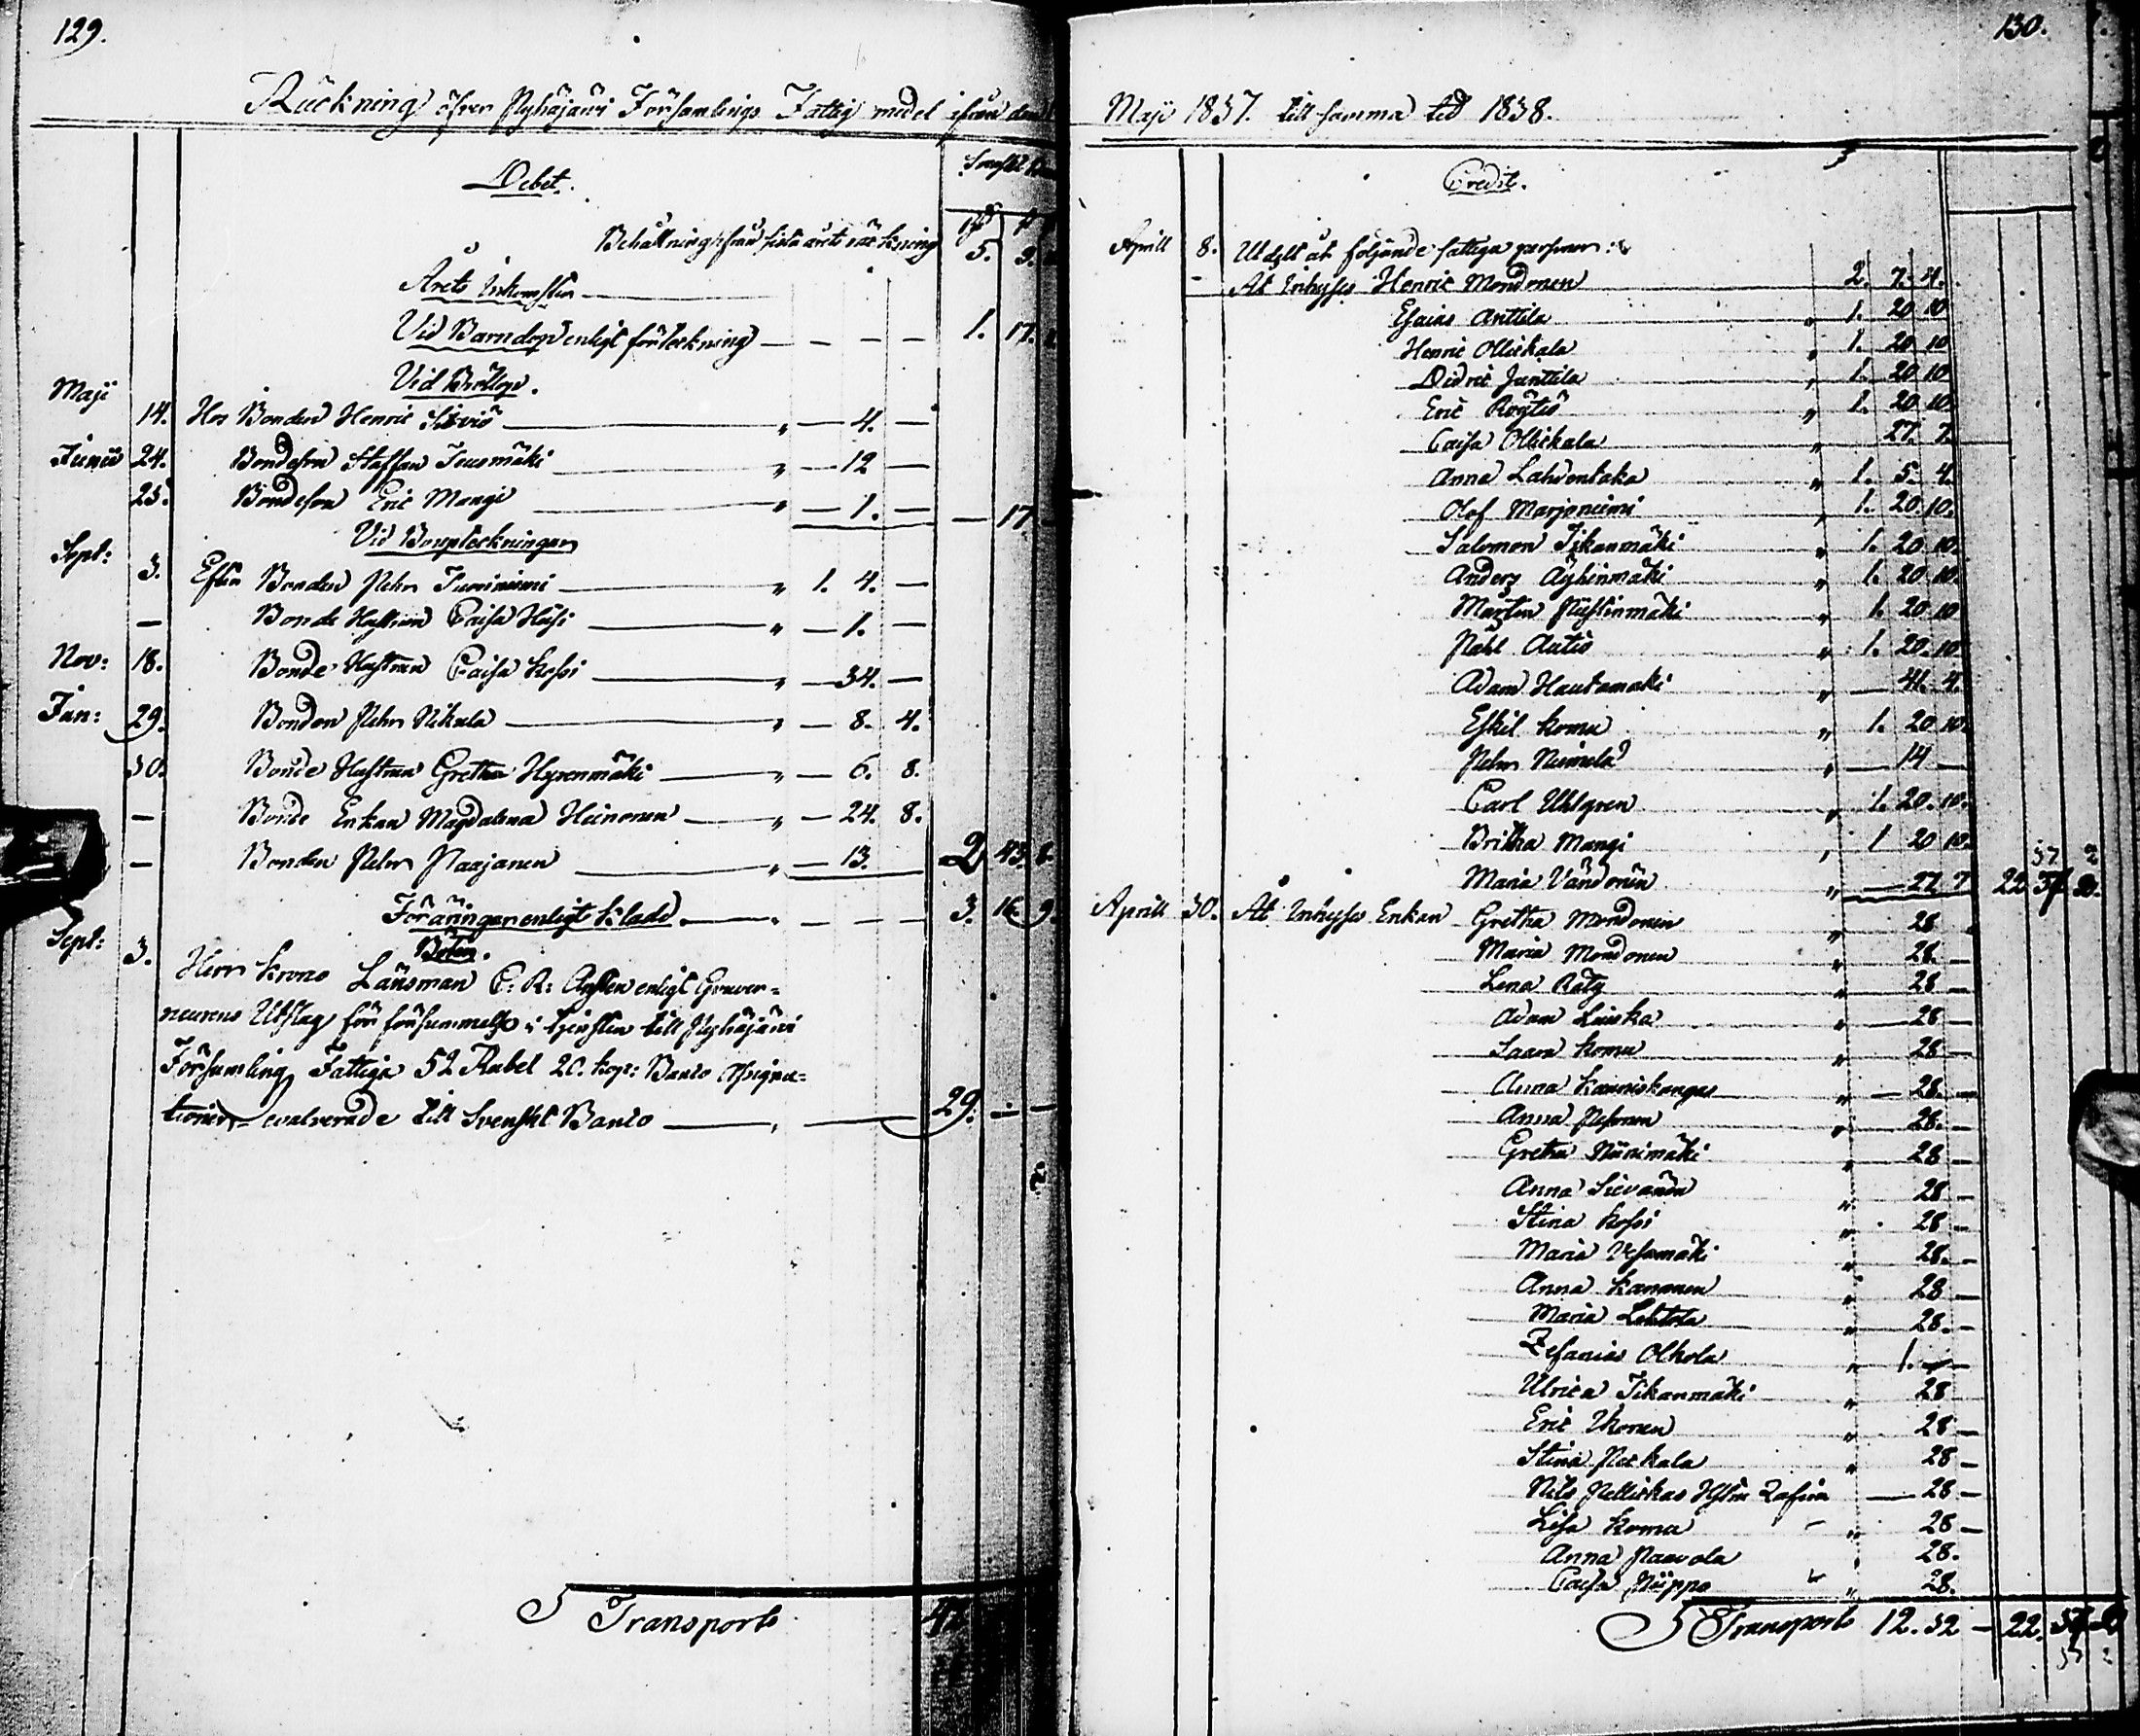 129.
Räckning öfver Pyhäjärvi Församlings Fattig medel ifrån den
Debet.
Behållning ifrån sista årets räkning 5. 9.
Årets Inkomster
Vid Barndop enligt förteckning — — — — 1. 17.
Vid Bröllop.
Maji 14. Hos Bonden Henric — 4. —
Junii 24. Bondeson Staffan — 12 —
25. Bondeson Eric Mangi — 1. — — 17
Vid Bouptekningar
Sept: 3. Efter Bonden Pehr Tuoriniemi 1. 4. —
— Bonde Hustrun Caisa — 1. —
Nov: 18. Bonde Hustrun Caisa Kossi — 34. —
Jan: 29. Bonden Pehr Nikula — 8. 4.
30. Bonde Hustrun Gretha Hyrenmäki — 6. 8.
— Bonde Enkan Magdalena Heinonen — 24. 8.
— Bonden Pehr Paajanen — 13. 2 43. 8.
Föräringar enligt Kladd. — — — 3. 16. 9.
Böter.
Sept: 3. Herr Krono Länsman C: R: enligt Gouver-
neurens Utslag för försummelse i tjensten till Pyhäjärvi
Församling Fattiga 52 Rubel 20. kop: Banco Assigna-
tioner evalverade till Svenskt Banco 29. — —
Transport 47
130.
Maji 1837. till samma tid 1838.
Credit.
Aprill 8. Utdelt åt följande fattiga personer:
- Åt Inhyses Henric Mondonen 2. 7. 4.
Esaias Anttila 1. 20 10
Henric Ollikala 1. 20 10
Didric Junttila 1. 20 10
Eric Röytiö 1. 20 10.
Caisa Ollikala 27. 7.
Anna Lahdentaka 1. 5. 4.
Olof Marjoniemi 1. 20. 10.
Salomon Tikanmäki 1. 20 10.
Anders Äyhinmäki 1. 20 10.
Mårten 1. 20 10
Påhl Autio 1. 20. 10
Adam Hautamäki — 41. 4.
Eskil Komu 1. 20 10.
Pehr Niemelä — 14 —
Carl Uhlgren 1. 20. 10.
Britha Mangi 1 20 10.
Maria Vändonen — 27 7 22 37 2
Aprill 30. Åt Inhyses Enkan Gretha Mondonen 28
Maria Mondonen 28. —
Lena Räty 28 —
Adam Luiska 28 —
Saara Komu 28 —
Anna Kanniskangas — 28. —
Anna 28. —
Gretha Niinimäki 28 —
Anna Sievänen 28 —
Stina Kossi 28 —
Maria Vesamäki 28. —
Anna Kananen 28 —
Maria Lehtola 28. —
Zefanias Olkola 1. — —
Ulrica Tikanmäki 28
Eric Ukonen 28 —
Stina 28 —
Nils Pellickas 28 —
Lisa Komu 28 —
Anna Paavola 28.
Caisa Piippo 28.
Transport 12. 52 — 22. 37 2